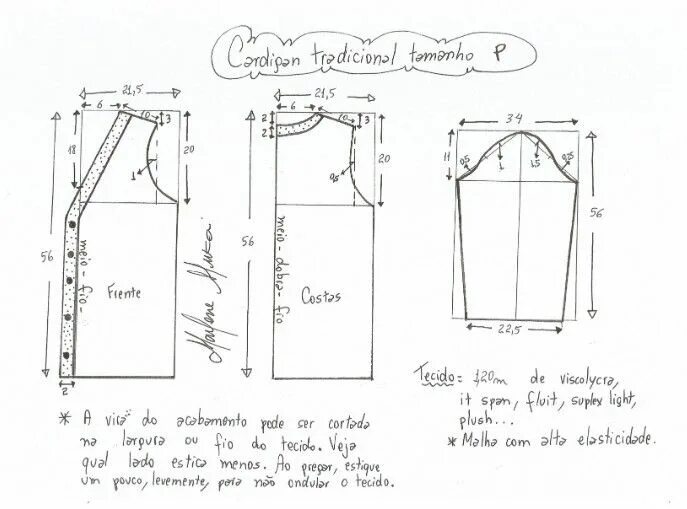 Cardigan tradicional tamanho P
21,5
6
10
3
18
20
1
56
meio - fio
Frente
2
Marlene Mukai
21,5
6
10
3
2
2
20
0,5
56
meio - dobra - fio
Costas
34
11
0,5
1
1,5
0,75
56
22,5
* A vira do acabamento pode ser cortada
na largura ou fio do tecido. Veja
qual lado estica menos. Ao pregar, estique
um pouco, levemente, para não ondular o tecido.
Tecido = 1,20m de viscolycra,
it span, fluit, suplex light,
plush...
* Malha com alta elasticidade.